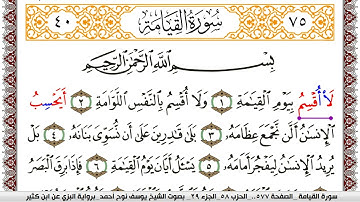 ٧٥ سُورَةُ القِيَامَةِ ٤٠
بِسْمِ اللَّهِ الرَّحْمَٰنِ الرَّحِيمِ
لَا أُقْسِمُ بِيَوْمِ الْقِيَٰمَةِ ١ وَلَا أُقْسِمُ بِالنَّفْسِ اللَّوَّامَةِ ٢ أَيَحْسِبُ
الْإِنسَٰنُ أَلَّن نَّجْمَعَ عِظَامَهُ ٣ بَلَىٰ قَٰدِرِينَ عَلَىٰ أَن نُّسَوِّيَ بَنَانَهُ ٤ بَلْ
يُرِيدُ الْإِنسَٰنُ لِيَفْجُرَ أَمَامَهُ ٥ يَسْـَٔلُ أَيَّانَ يَوْمُ الْقِيَٰمَةِ ٦ فَإِذَا بَرِقَ الْبَصَرُ
سورة القيامة .. الصفحة ٥٧٧.. الحزب ٥٨ الجزء ٢٩ بصوت الشيخ يوسف نوح احمد برواية البزي عن ابن كثير